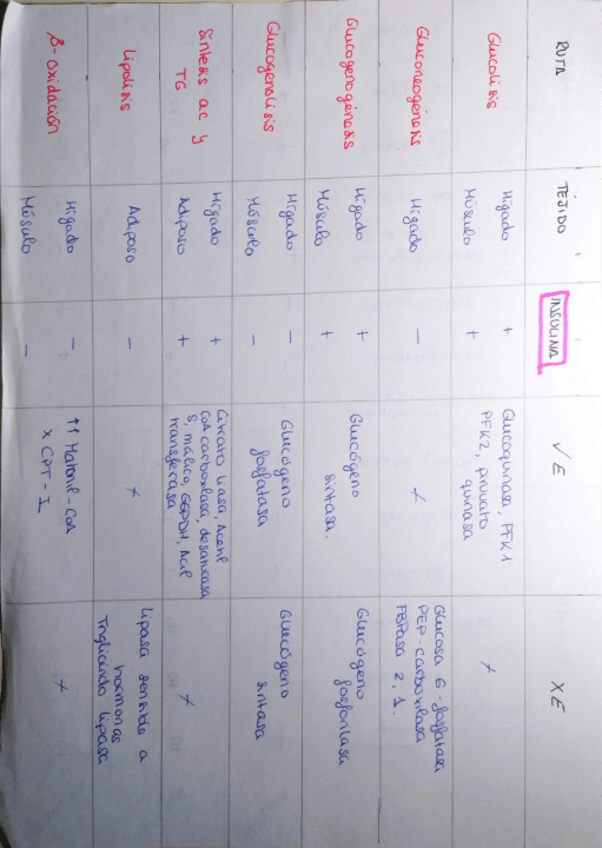 RUTA TEJIDO INSULINA √E XE
Glucolisis
Hígado
Músculo
+
+
Glucoquinasa, PFK1
PFK2, piruvato
quinasa
x
Gluconeogénesis
Hígado
-
x
Glucosa 6-fosfatasa
PEP-carboxilasa
FBPasa 2, 1.
Glucogenogénesis
Hígado
Músculo
+
+
Glucógeno
sintasa.
Glucógeno
fosforilasa
Glucogenolisis
Hígado
Músculo
-
-
Glucógeno
fosfatasa
Glucógeno
sintasa
Síntesis ac y
TG
Hígado
Adiposo
+
+
Citrato liasa, Acetil
CoA carboxilasa, desaturasa
S, málica, G6PDH, Acil
transferasa
x
Lipolisis
Adiposo
-
x
Lipasa sensible a
hormonas
Triglicérido lipasa
β-Oxidación
Hígado
Músculo
-
-
↑↑ Malonil-CoA
x CPT-I
x